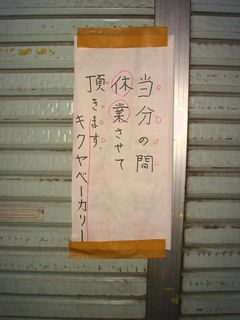 当分の間
休業させて
頂きます.
キクヤベーカリー